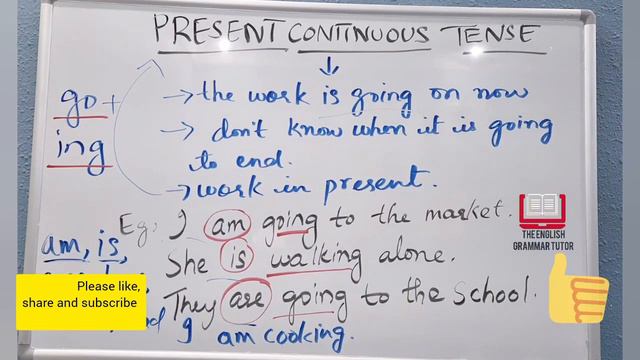 PRESENT CONTINUOUS TENSE
go +
ing
→ the work is going on now
→ don't know when it is going
to end.
→ work in present.
Eg: I am going to the market.
am, is,
She is walking alone.
They are going to the School.
I am cooking.
THE ENGLISH
GRAMMAR TUTOR
Please like,
share and subscribe